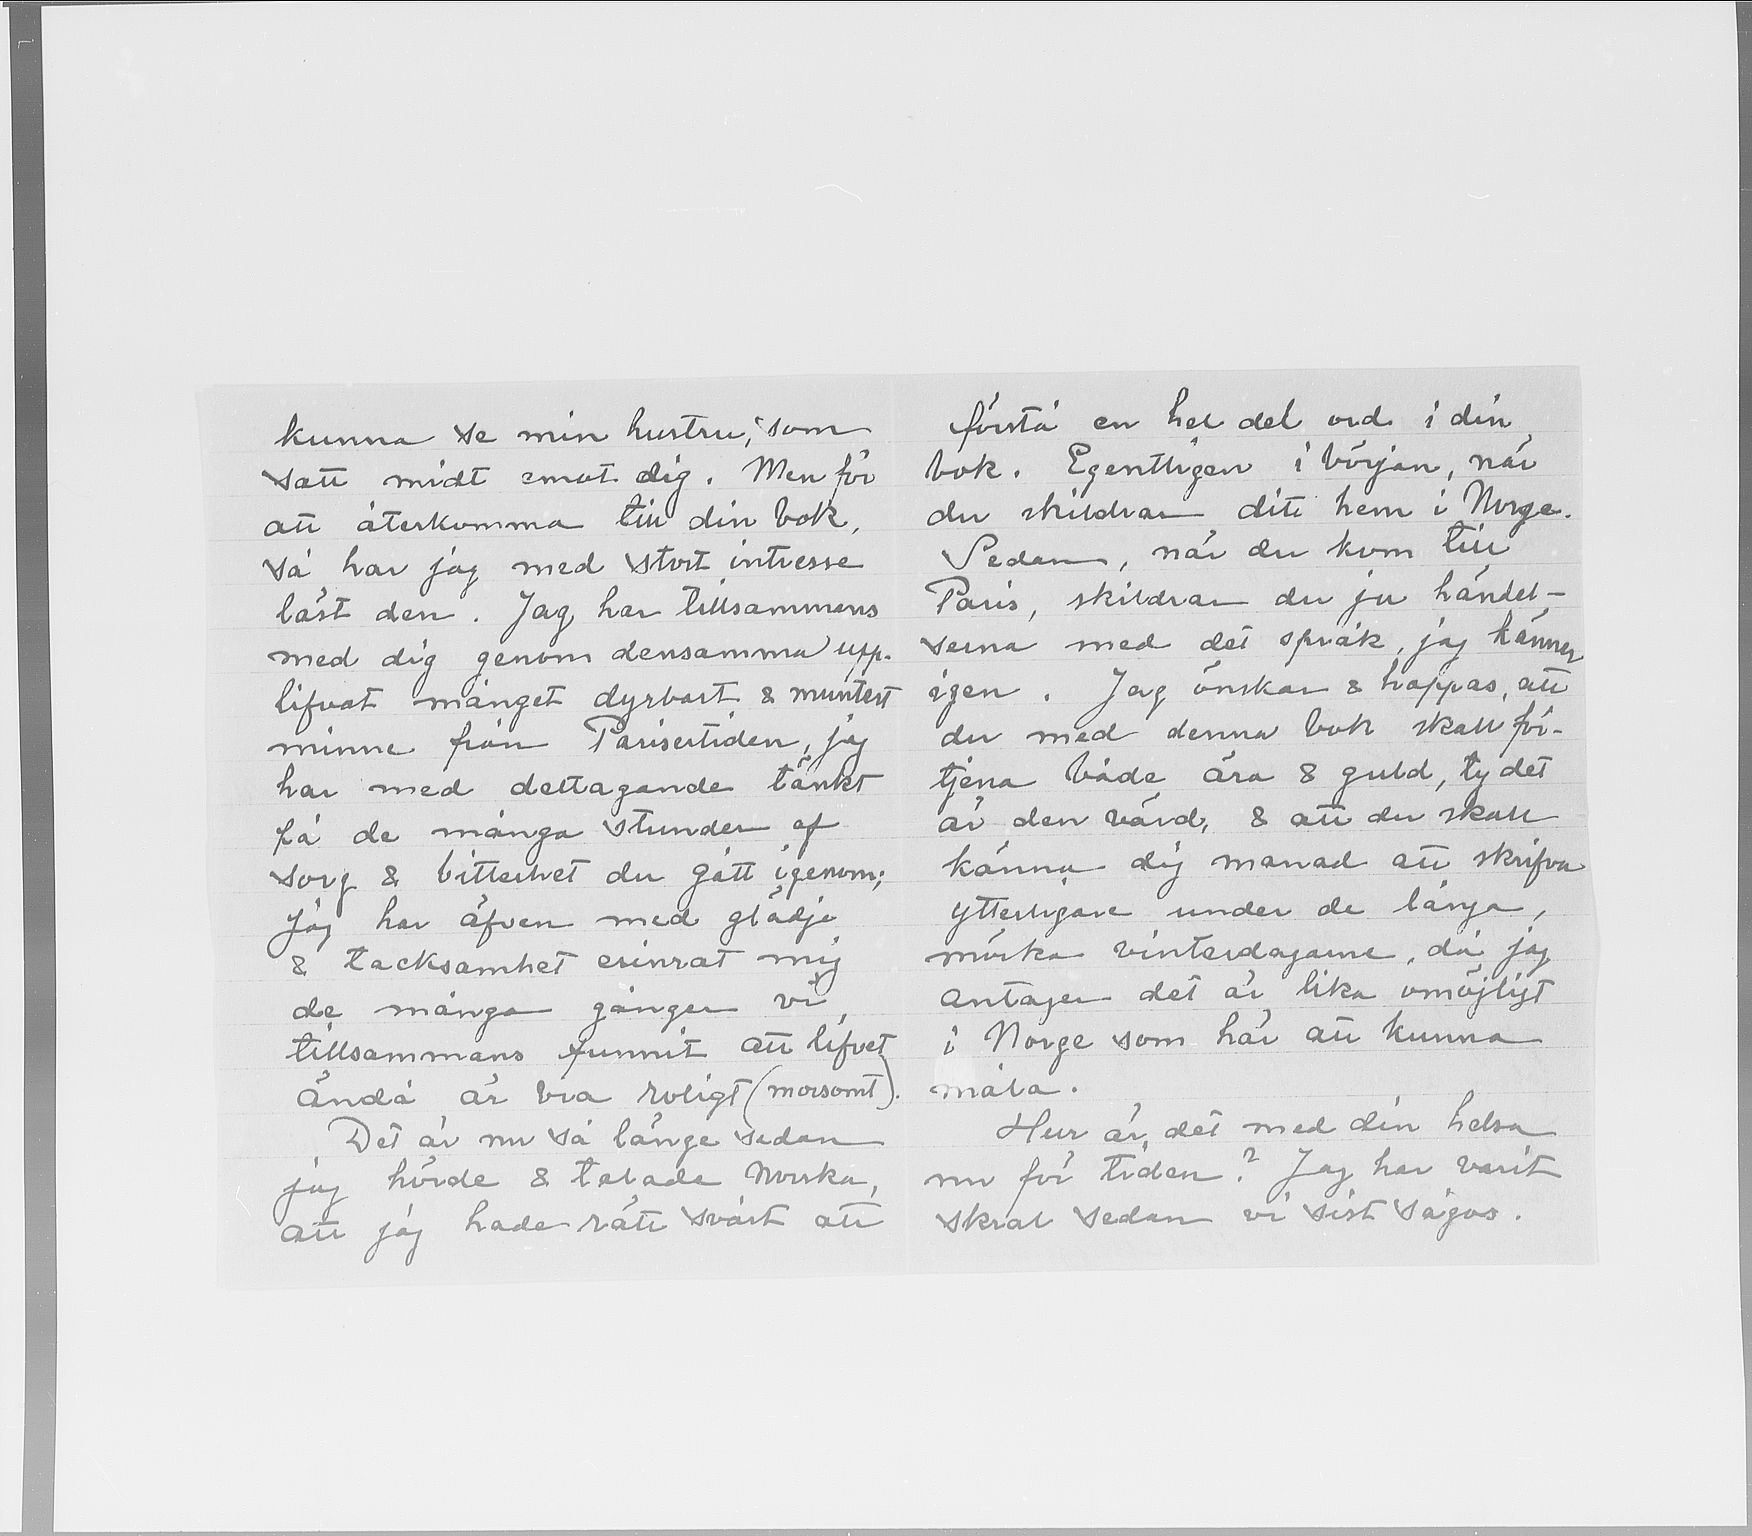 kunna se min hustru, som
satt midt emot dig. Men för
att återkomma till din bok,
så har jag med stort intresse
läst den. Jag har tillsammens
med dig genom densamma upp-
lifvat månget dyrbart & muntert
minne från Parisertiden, jag
har med deltagande tänkt
på de många stunder af
sorg & bitterhet du gått igenom;
jag har äfven med glädje
& tacksamhet erinrat mig
de många gånger vi
tillsammans funnit att lifvet
ändå är bra roligt (morsomt).
Det är nu så länge sedan
jag hörde & talade Norska,
att jag hade rätt svårt att
förstå en hel del ord i din
bok. Egentligen i början, när
du skildrar ditt hem i Norge.
Sedan, när du kom till
Paris, skildrar du ju händel-
serna med det språk, jag känner
igen. Jag önskar & hoppas, att
du med denna bok skall för-
tjena både ära & guld, ty det
är den värd, & att du skall
känna dig manad att skrifva
ytterligare under de långa,
mörka vinterdagarne, då jag
antager det är lika omöjligt
i Norge som här att kunna
måla.
Hur är det med din helsa
nu för tiden? Jag har varit
skral sedan vi sist sågos.